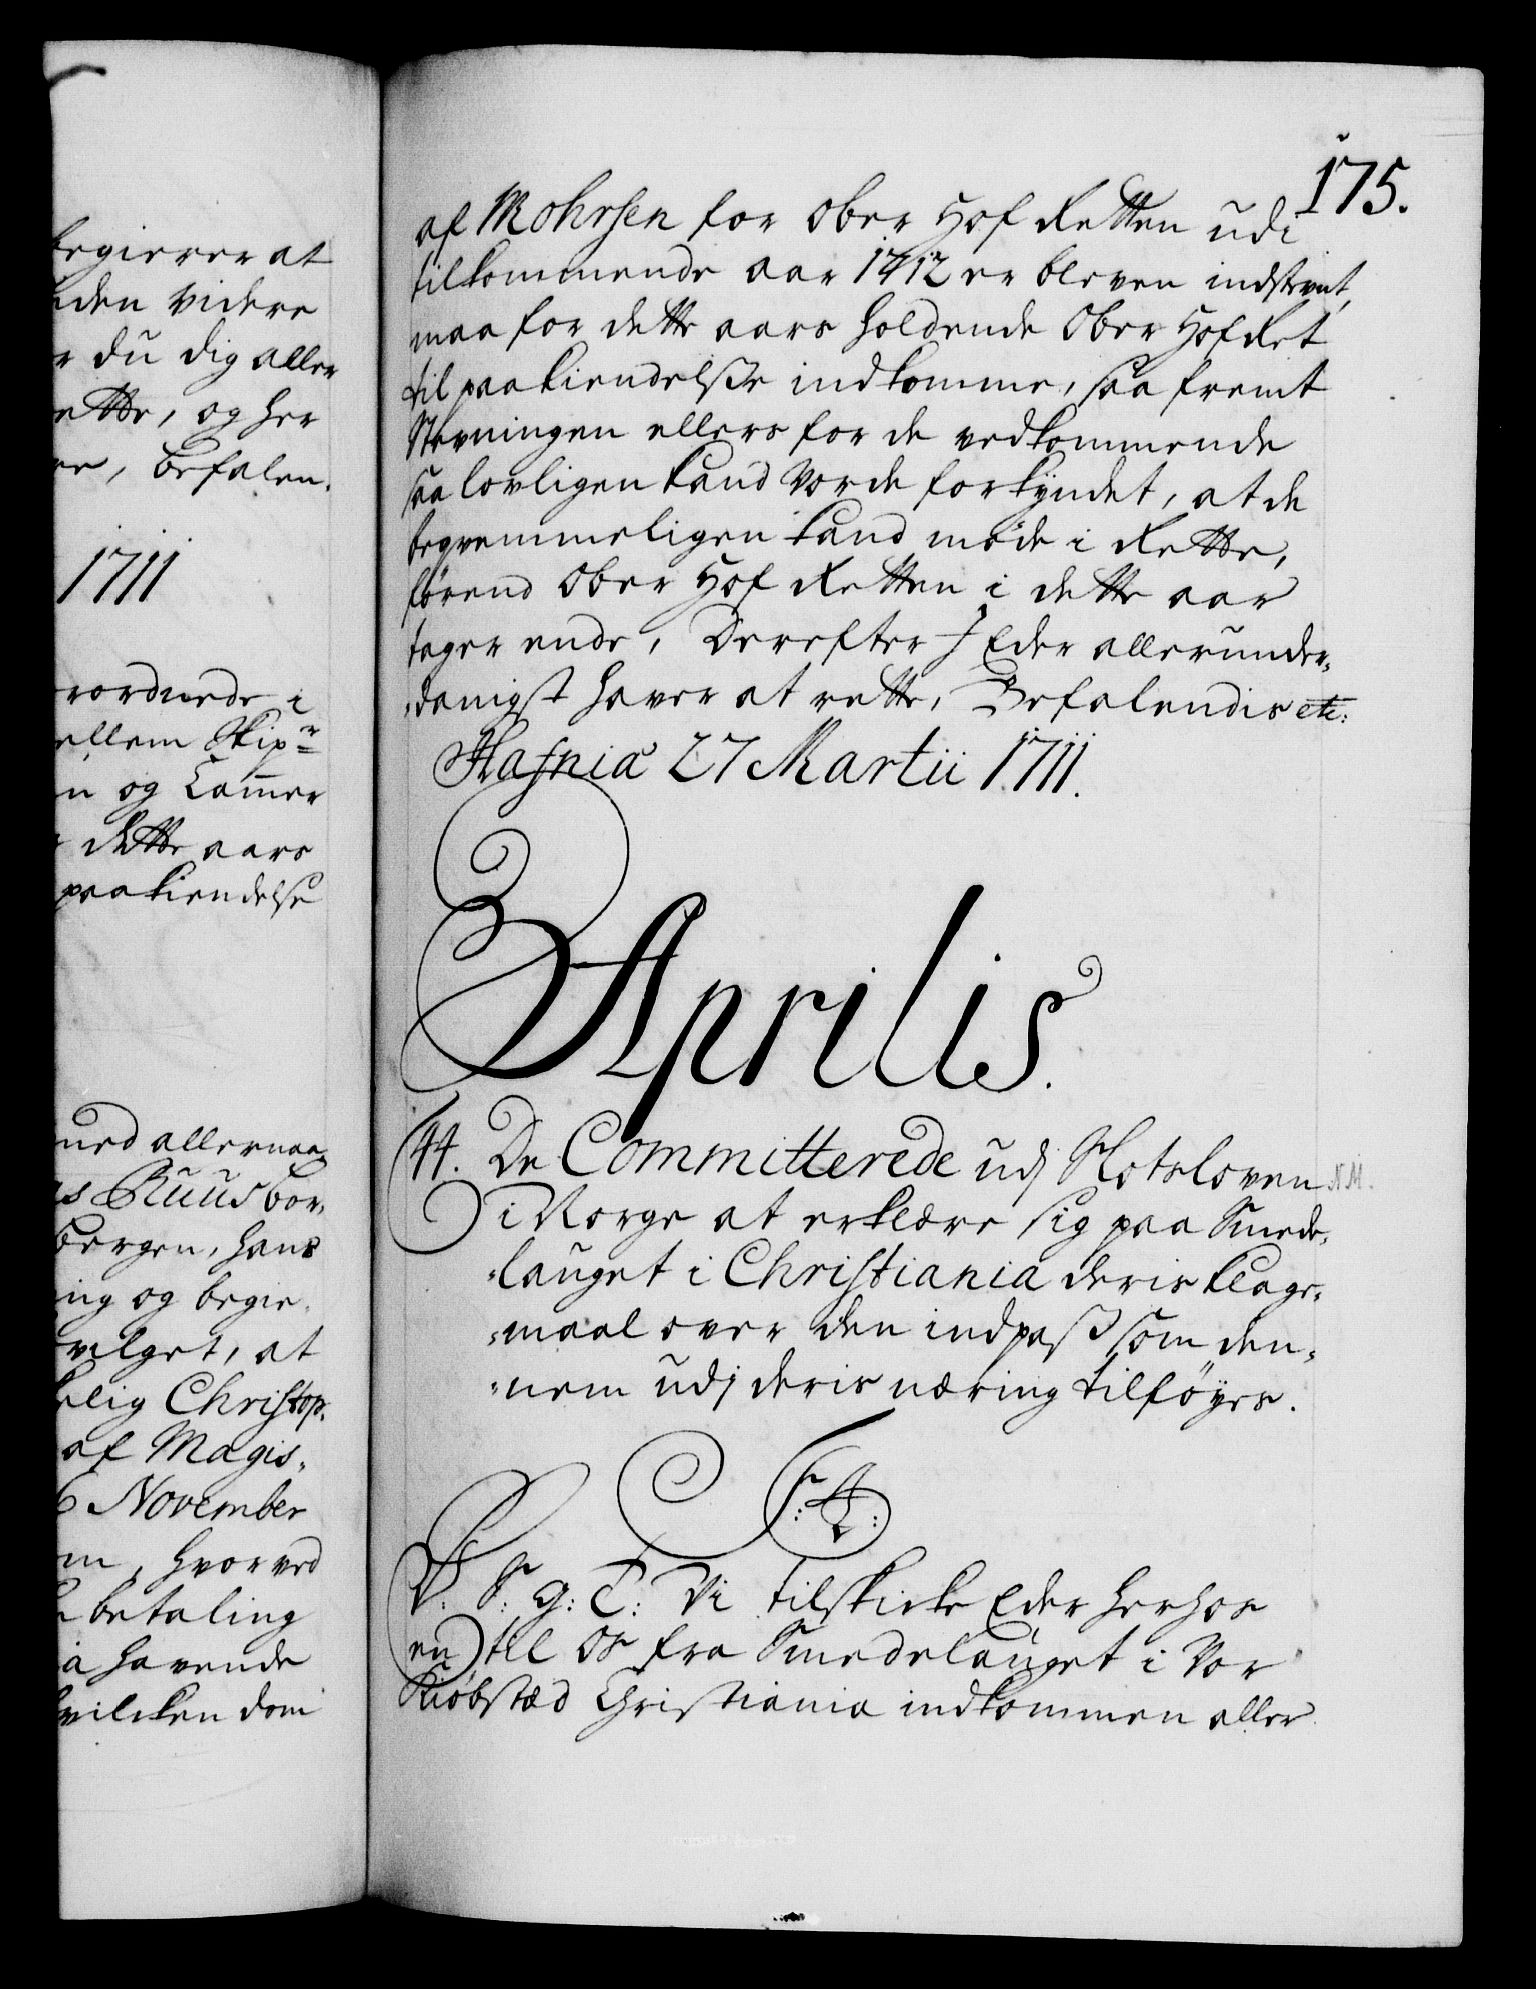 begierer at
den videre
du dig aller
ette, og her
re, befalen.
1711
rordnede i
ellem Skipr
n og Cammer
dette aars
paakiendelse
med allernaa
Ruus bor,
bergen, hans
ing og begie,
vilget, at
elig Christop.
af Magis,
6 November
m, hvorved
betaling
a havende
hvilcken dom
175.
af Mohrsen for Ober Hof Retten udi
tilkommende aar 1712 er bleven indstevnt,
maa for dette aars holdende Ober Hof Ret
til paakiendelsße indkomme, saa fremt
Stevningen ellers for de vedkommende
saa lovligen kand vorde forkyndet, at de
beqvemmeligen kand møde i Rette,
førend Ober Hof Retten i dette aar
tager ende, Derefter I Eder allerunder,
,danigst haver at rette, Befalendis etc:
Hafnia 27 Martii 1711.
Aprilis.
44. De Committerede udj Slotsloven N.M.
i Norge at erklære sig paa Smede,
,lauget i Christiania deris klage,
,maal over den indpaß som den,
,nem udj deris næring tilføyes.
V: S: G: T: Vi tilskicke Eder herhos
en til Os fra Smedelauget i Vor
Kiøbstæd Christiania indkommen aller